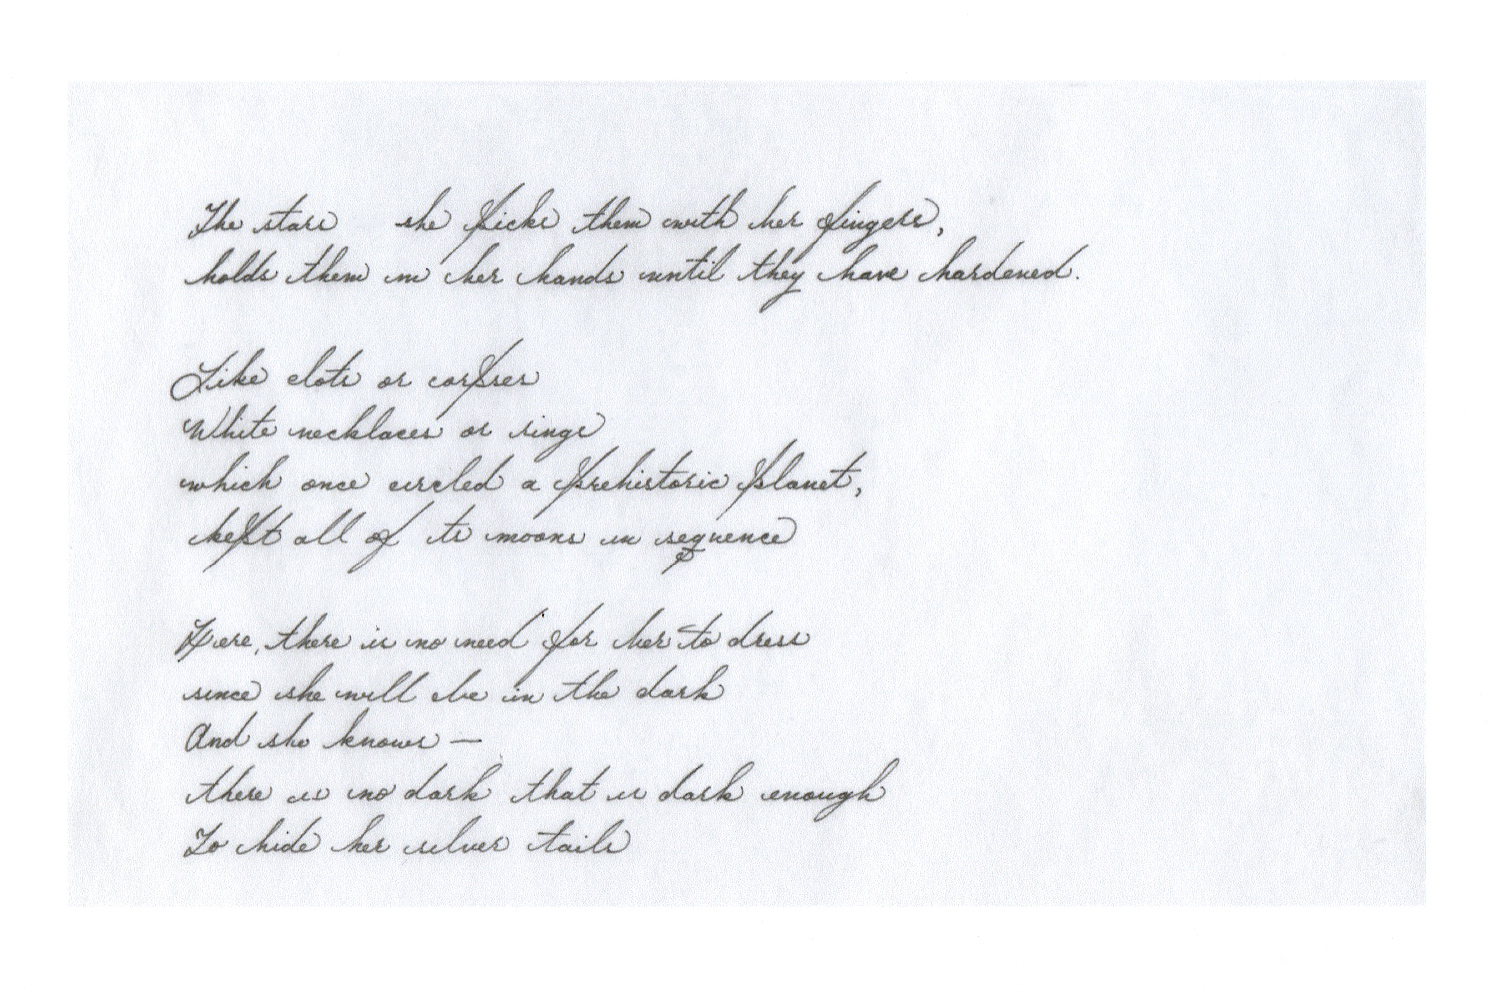 The stars she picks them with her fingers,
holds them in her hands until they have hardened.
Like clots or corpses
White necklaces or rings
which once circled a prehistoric planet,
kept all of its moons in sequence
Here, there is no need for her to dress
since she will be in the dark
And she knows —
there is no dark that is dark enough
To hide her silver tails